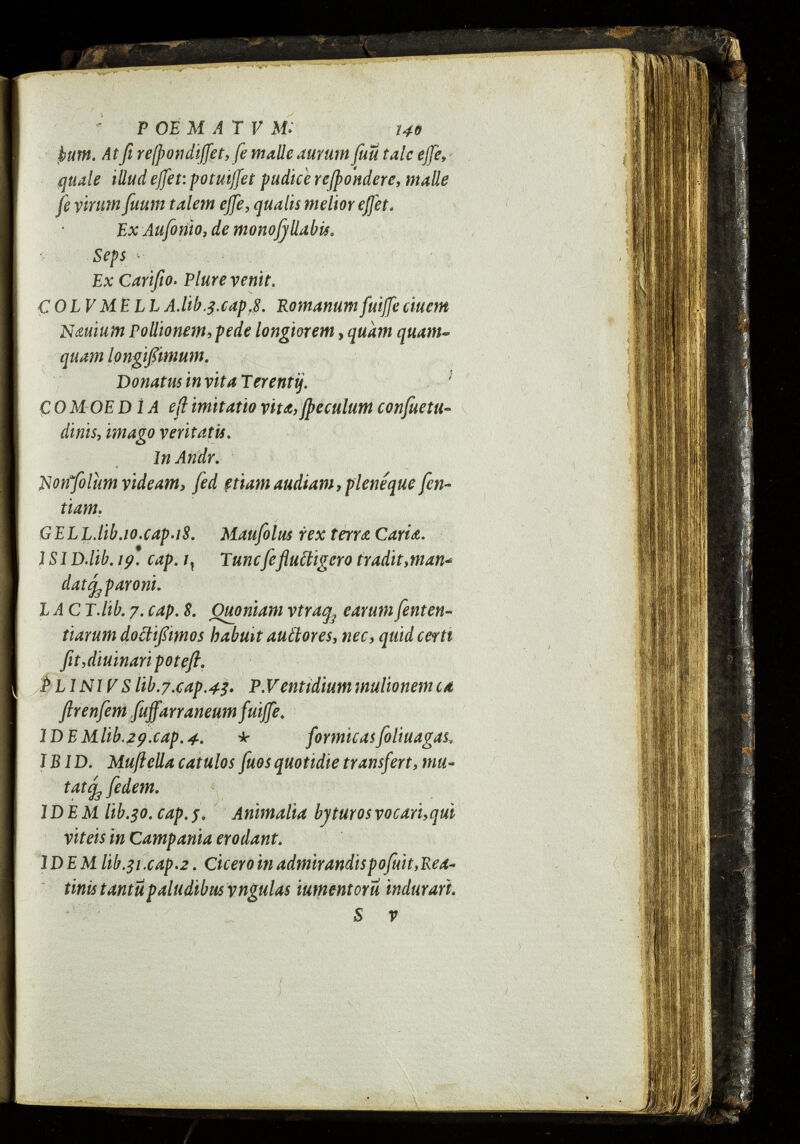 POEMATVM. 140
bum. At si respondisset, se malle aurum suũ tale esse,
quale illud esset: potuisset pudicè respondere, malle
se virum suum talem esse, qualis melior esset.
Ex Ausonio, de monosyllabis.
Seps
Ex Carisio. Plure venit.
COLVMELLA.lib.3.cap.8. Romanum fuisse ciuem
Næuium Pollionem, pede longiorem, quàm quam-
quam longißimum.
Donatus in vita Terentij.
COMOEDIA est imitatio vitæ, speculum consuetu-
dinis, imago veritatis.
In Andr.
Non solùm videam, sed etiam audiam, plenéque sen-
tiam.
GELL.lib.10.cap.18. Mausolus rex terræ Cariæ.
ISID.lib.19. cap. 1, Tunc se fluctigero tradit, man-
datq́; paroni.
LACT.lib. 7. cap. 8. Quoniam vtraq; earum senten-
tiarum doctißimos habuit auctores, nec, quid certi
sit, diuinari potest.
PLINIVS lib.7.cap.43. P.Ventidium mulionem ca
strensem suffarraneum fuisse.
IDEM lib.29.cap.4. * formicas soliuagas.
IBID. Mustella catulos suos quotidie transfert, mu-
tatq́; sedem.
IDEM lib.30. cap. 5. Animalia byturos vocari, qui
viteis in Campania erodant.
IDEM lib.31.cap.2. Cicero in admirandis posuit, Rea-
tinis tantũ paludibus vngulas iumentorũ indurari.
S v